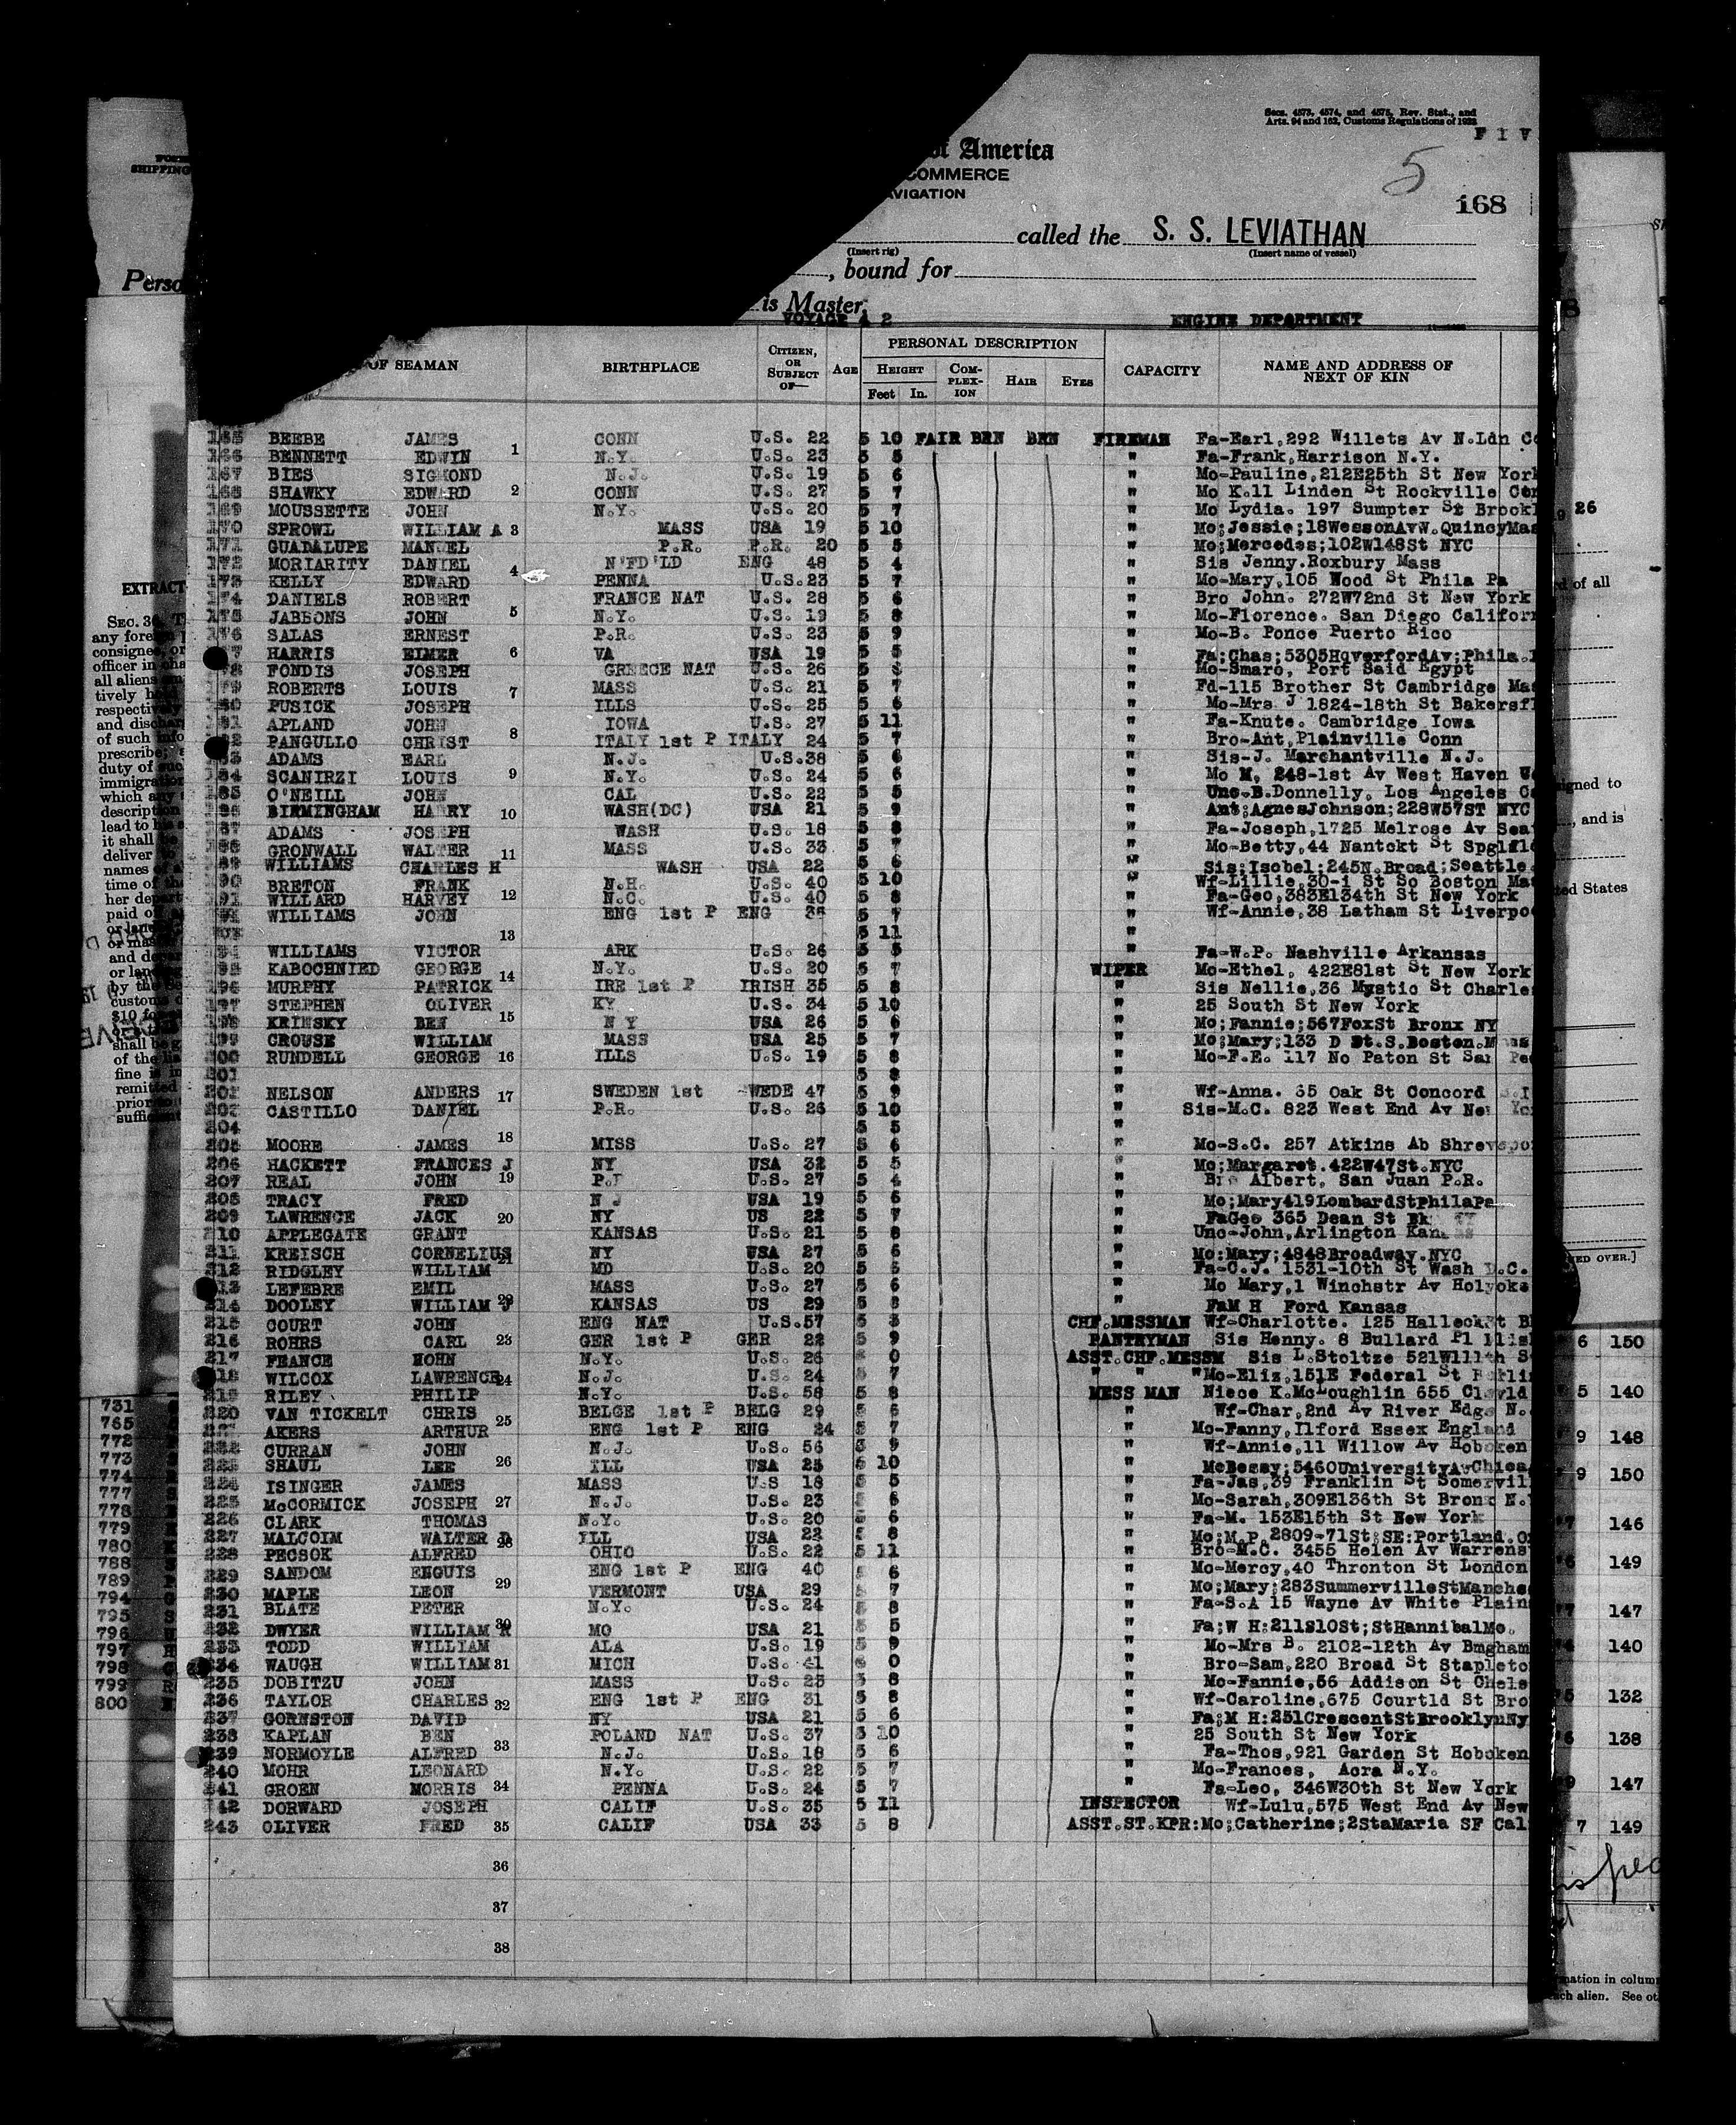 Secs. 4573, 4574, and 4575, Rev. Stat., and
Arts. 94 and 162, Customs Regulations of 1922
F I V
of America
5
COMMERCE
AVIGATION
168
called the S. S. LEVIATHAN
(Insert rig) (Insert name of vessel)
, bound for
is Master,
VOYAGE 4 2 ENGINE DEPARTMENT
OF SEAMAN BIRTHPLACE CITIZEN, OR SUBJECT OF— AGE PERSONAL DESCRIPTION CAPACITY NAME AND ADDRESS OF NEXT OF KIN
HEIGHT COM-PLEX-ION HAIR EYES
Feet In.
165 BEEBE JAMES 1 CONN U.S. 22 5 10 FAIR BRN BRN FIREMAN Fa-Earl,292 Willets Av N.Ldn
166 BENNETT EDWIN N.Y. U.S. 23 5 5 " Fa-Frank,Harrison N.Y.
167 BIES SIGMOND N.J. U.S. 19 5 6 " Mo-Pauline,212E25th St New York
168 SHAWKY EDWARD 2 CONN U.S. 27 5 7 " Mo K.11 Linden St Rockville
169 MOUSSETTE JOHN N.Y. U.S. 20 5 7 " Mo Lydia. 197 Sumpter St Brookl
170 SPROWL WILLIAM A 3 MASS USA 19 5 10 " Mo;Jessie;18WessonAvW.QuincyMas
171 GUADALUPE MANUEL P.R. P.R. 20 5 5 " Mo;Mercedes;102W148St NYC
172 MORIARITY DANIEL 4 N'FD'LD ENG 48 5 4 " Sis Jenny.Roxbury Mass
173 KELLY EDWARD PENNA U.S.23 5 7 " Mo-Mary,105 Wood St Phila Pa
174 DANIELS ROBERT FRANCE NAT U.S. 28 5 6 " Bro John. 272W72nd St New York
175 JABSONS JOHN 5 N.Y. U.S. 19 5 8 " Mo-Florence. San Diego Californ
176 SALAS ERNEST P.R. U.S. 23 5 9 " Mo-B. Ponce Puerto Rico
7 HARRIS ELMER 6 VA USA 19 5 5 " Fa;Chas;5305HaverfordAv;Phila.
178 FONDIS JOSEPH GREECE NAT U.S. 26 5 " Mo-Smaro, Port Said Egypt
179 ROBERTS LOUIS 7 MASS U.S. 21 5 7 " Fd-115 Brother St Cambridge Mas
180 PUSICK JOSEPH ILLS U.S. 25 5 6 " Mo-Mrs J 1824-18th St Bakersf
181 APLAND JOHN IOWA U.S. 27 5 11 " Fa-Knute. Cambridge Iowa
82 PANGULLO CHRIST 8 ITALY 1st P ITALY 24 5 7 " Bro-Ant,Plainville Conn
83 ADAMS EARL N.J. U.S.38 5 6 " Sis-J. Marchantville N.J.
184 SCANIRZI LOUIS 9 N.Y. U.S. 24 5 6 " Mo M, 248-1st Av West Haven
185 O'NEILL JOHN CAL U.S. 22 5 5 " Unc-B.Donnelly, Los Angeles
186 BIRMINGHAM HARRY 10 WASH(DC) USA 21 5 9 " Ant;AgnesJohnson;228W57ST NYC
187 ADAMS JOSEPH WASH U.S. 18 5 8 " Fa-Joseph,1725 Melrose Av Sea
188 GRONWALL WALTER 11 MASS U.S. 33 5 7 " Mo-Betty,44 Nantokt St Spglfl
189 WILLIAMS CHARLES H WASH USA 22 5 6 " Sis;Isobel:245N.Broad;Seattle.
190 BRETON FRANK N.H. U.S. 40 5 10 " Wf-Lillie,30-1 St So Boston Mas
191 WILLARD HARVEY 12 N.C. U.S. 40 5 8 " Fa-Geo,383E134th St New York
WILLIAMS JOHN ENG 1st P ENG 38 5 7 " Wf-Annie,38 Latham St Liverpo
13 5 11 "
WILLIAMS VICTOR ARK U.S. 26 5 5 " Fa-W.P. Nashville Arkansas
195 KABOCHNIED GEORGE 14 N.Y. U.S. 20 5 7 WIPER Mo-Ethel, 422E81st St New York
196 MURPHY PATRICK IRE 1st P IRISH 35 5 8 " Sis Nellie,36 Mystic St Charles
197 STEPHEN OLIVER KY U.S. 34 5 10 " 25 South St New York
198 KRINSKY BEN 15 N Y USA 26 5 6 " Mo;Fannie;567FoxSt Bronx NY
199 CROUSE WILLIAM MASS USA 25 5 7 " Mo;Mary;133 D St.S.Boston.Mass
200 RUNDELL GEORGE 16 ILLS U.S. 19 5 8 " Mo-F.E. 117 No Paton St San Pe
201 5 8 "
202 NELSON ANDERS 17 SWEDEN 1st SWEDE 47 5 9 " Wf-Anna. 65 Oak St Concord
203 CASTILLO DANIEL P.R. U.S. 26 5 10 Sis-M.C. 823 West End Av New Yo
204 5 5 "
205 MOORE JAMES 18 MISS U.S. 27 5 6 " Mo-S.C. 257 Atkins Ab Shrevepo
206 HACKETT FRANCES J NY USA 32 5 5 " Mo;Margaret.422W47St.NYC
207 REAL JOHN 19 P.R U.S. 27 5 4 " Bro Albert, San Juan P.R.
208 TRACY FRED N J USA 19 5 6 " Mo;Mary419LombardStPhilaPa
209 LAWRENCE JACK 20 NY US 22 5 7 " FaGeo 365 Dean St Bk NY
210 APPLEGATE GRANT KANSAS U.S. 21 5 8 " Unc-John,Arlington Kansas
211 KREISCH CORNELIUS 21 NY USA 27 5 6 " Mo:Mary;4848Broadway.NYC
212 RIDGLEY WILLIAM MD U.S. 20 5 " Fa-C.J. 1531-10th St Wash D.C.
213 LEFEBRE EMIL MASS U.S. 27 5 6 " Mo Mary,1 Winchstr Av Holyoke
214 DOOLEY WILLIAM J 22 KANSAS US 29 5 8 " FaM H Ford Kansas
215 COURT JOHN ENG NAT U.S.57 5 3 CHF.MESSMAN Wf-Charlotte. 125 Halleck St
216 ROHRS CARL 23 GER 1st P GER 22 5 9 PANTRYMAN Sis Henny. 8 Bullard Pl
217 FEANCE HOHN N.Y. U.S. 26 0 ASST.CHF.MESSM Sis L.Stoltze 521W111th S
218 WILCOX LAWRENCE 24 N.J. U.S. 24 7 " " " Mo-Eliz,151E Federal St
219 RILEY PHILIP N.Y. U.S. 58 5 8 MESS MAN Niece K.McLoughlin 655 Clevld
220 VAN TICKELT CHRIS BELGE 1st P BELG 29 5 6 " Wf-Char,2nd Av River Edge N.
AKERS ARTHUR 25 ENG 1st P ENG 24 5 7 " Mo-Fanny,Ilford Essex England
222 CURRAN JOHN N.J. U.S. 56 5 9 " Wf-Annie,11 Willow Av Hoboken
223 SHAUL LEE 26 ILL USA 25 5 10 " McBessy;5460UniversityAvChica
224 ISINGER JAMES MASS U.S 18 5 5 " Fa-Jas,39 Franklin St Somervil
225 McCORMICK JOSEPH 27 N.J. U.S. 23 5 6 " Mo-Sarah,309E136th St Bronx N.Y
226 CLARK THOMAS N.Y. U.S. 20 5 6 " Fa-M. 153E15th St New York
227 MALCOLM WALTER D 28 ILL USA 22 5 8 " Mo;M.P.2809-71St;SE:Portland.O
228 PECSOK ALFRED OHIO U.S. 22 5 11 " Bro-M.C. 3455 Helen Av Warrens
229 SANDOM ENGUIS ENG 1st P ENG 40 5 6 " Mo-Mercy,40 Thronton St London
230 MAPLE LEON 29 VERMONT USA 29 5 7 " Mo;Mary;283SummervilleStManche
231 BLATE PETER N.Y. U.S. 24 5 8 " Fa-S.A 15 Wayne Av White Plain
232 DWYER WILLIAM R 30 MO USA 21 5 5 " Fa;W H:211S10St;StHannibalMo.
233 TODD WILLIAM ALA U.S. 19 5 9 " Mo-Mrs B. 2102-12th Av Bmgham
234 WAUGH WILLIAM 31 MICH U.S. 41 0 " Bro-Sam,220 Broad St Stapleto
235 DOBITZU JOHN MASS U.S. 23 5 8 " Mo-Fannie,56 Addison St Chels
236 TAYLOR CHARLES 32 ENG 1st P ENG 31 5 8 " Wf-Caroline,675 Courtld St Bro
237 GORNSTON DAVID NY USA 21 5 6 " Fa;M H:251CrescentStBrooklynNy
238 KAPLAN BEN POLAND NAT U.S. 37 5 10 " 25 South St New York
239 NORMOYLE ALFRED 33 N.J. U.S. 18 5 6 " Fa-Thos,921 Garden St Hoboken
240 MOHR LEONARD N.Y. U.S. 22 5 7 " Mo-Frances, Acra N.Y.
241 GROEN MORRIS 34 PENNA U.S. 24 5 7 " Fa-Leo, 346W30th St New York
242 DORWARD JOSEPH CALIF U.S. 35 5 11 INSPECTOR Wf-Lulu,575 West End Av New
243 OLIVER FRED 35 CALIF USA 33 5 8 ASST.ST.KPR:Mo;Catherine;2StaMaria SF Cal
36
37
38
SHIPPING
Perso
EXTRACT
SEC. 36. T
any foreign
consignee, or
officer in cha
all aliens
tively
respectiv
and dischar
of such info
prescribe;
duty of
immigration
which any
description
lead to
it shall be
deliver
names of
time of the
her depart
paid off
or land
or mas
and depar
or landing
by the Se
customs d
$10 for
shall be
of the
fine is in
remitted
prior to
sufficient
731
765
772
773
774
777
778
779
780
788
789
794
795
796
797
798
799
800
26
d of all
igned to
, and is
ted States
ED OVER.]
6 150
5 140
9 148
9 150
7 146
6 149
7 147
4 140
5 132
6 138
9 147
7 149
mation in colum
ch alien. See ot